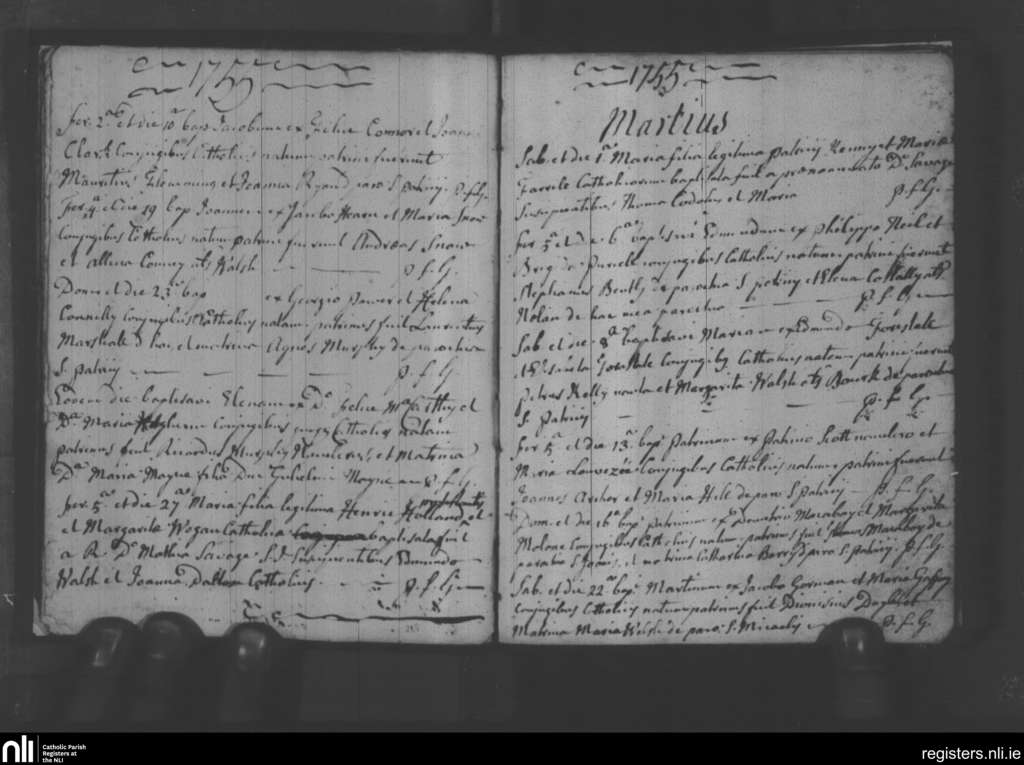 1755
Fer. 2.a et die 10.a bap. Jacobum ex Felice Connor et Joanna
Clark Conjugibus Catholicis natum patrini fuerunt
Mauritius Flemming et Joanna Ryan D paro S. patricij. P.f.G.
Fer. 4.a et die 19 bap. Joannem ex Jacobo Hearn et Maria
Conjugibus Catholicis natum patrini fuerunt Andreas
et Conney als Walsh P.f.G.
Dom. et die 23.a bap. ex Georgio Power et Helena
Connelly Conjugibus Catholicis natam patrinus fuit Laurentius
Marshall D hac et matrina Agnes Murphy de parochia
S. patricij P.f.G.
Eodem die baptisavi Elenam ex D. Felice McCarthy et
D.a Maria Conjugibus Catholicis natam
patrinus fuit Ricardus Murphy et Matrina
D.a Maria Mayne filia Dni Gulielmi Mayne P.f.G.
Fer. 5.a et die 27.a Maria filia legitima Henrici Holland et
et Margaritæ Wogan Catholica baptisata fuit
a R. D. Mathia Savage S.J. Suscipientibus Edmundo
Walsh et Joanna Dalton Catholicis. P.f.G.
1755
Martius
Sab. et die 1.a Maria filia legitima Patricij Kenny et Mariæ
Farrele Catholicorum baptisata fuit a prænominato D. Savage
Suscipientibus Thoma Codd et Maria P.f.G.
Fer. 5.a et die 6.a baptisavi Edmundum ex Philippo Neil et
Brigida Purcele conjugibus Catholicis natum patrini fuerunt
Stephanus Bently de parochia S. patricij et Elena als
Nolan de hac mea parochia P.f.G.
Sab. et die 8.a baptisavi Mariam ex Edmundo Forestale
et Forestale Conjugibus Catholicis natam patrini fuerunt
Petrus Kelly nauta et Margarita Walsh als Rourk de parochia
S. Patricij P.f.G.
Fer. 5.a et die 13.a bap. Patricium ex Patricio Scott et
Maria Conjugibus Catholicis natum patrini fuerunt
Joannes Archer et Maria Hill de paro. S. Patricij P.f.G.
Dom. et die 16.a bap. patricium ex Demetrio et Margarita
Molone Conjugibus Catholicis natum patrinus fuit de
parochia S. Joannis, et matrina Catharina Barry D paro S. patricij. P.f.G.
Sab. et die 22.a bap. Martinum ex Jacobo Gorman et Maria
Conjugibus Catholicis natum patrinus fuit Dionisius et
Matrina Maria Welsh de paro. S. Micaelis P.f.G.
nli
Catholic Parish
Registers at
the NLI
registers.nli.ie